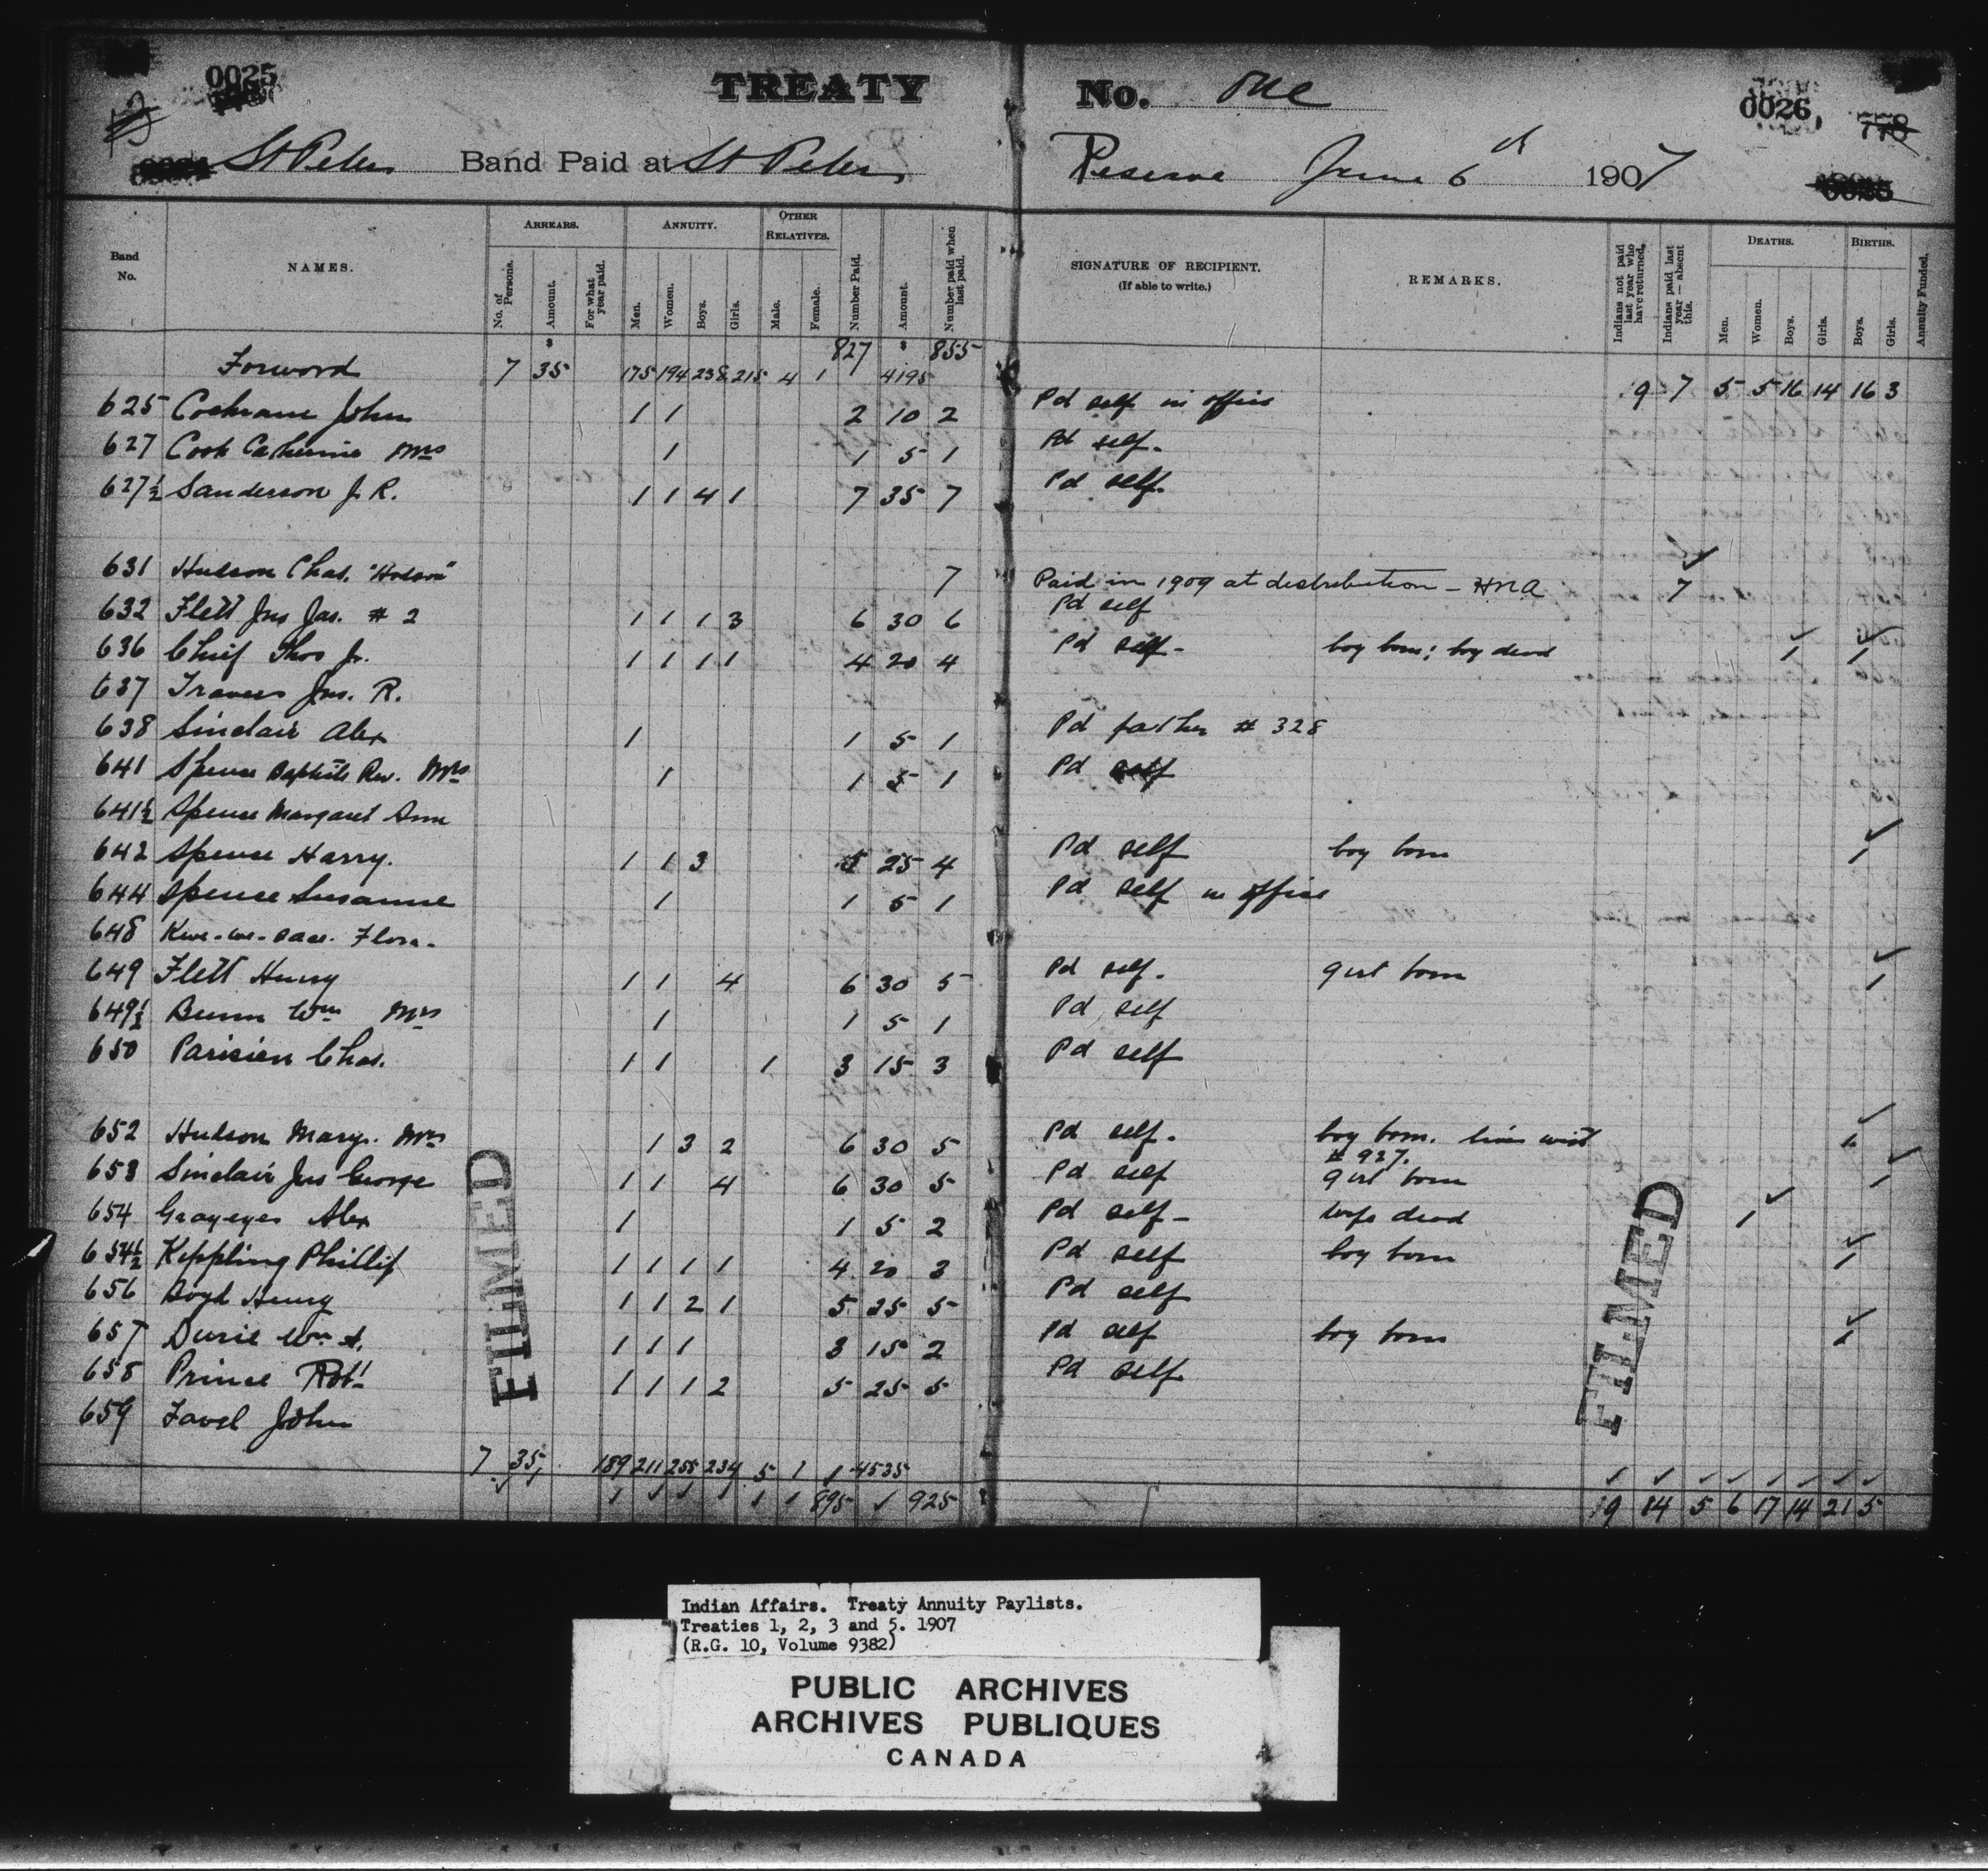 0025
TREATY No. One
0026
778
St Peters Band Paid at St Peters Reserve June 6th 1907
Band No. NAMES. ARREARS. No. of Persons. Amount. For what year paid. ANNUITY. Men. Women. Boys. Girls. OTHER RELATIVES. Male. Female. Number Paid. Amount. Number paid when last paid. SIGNATURE OF RECIPIENT. (If able to write.) REMARKS. Indians not paid last year who have returned. Indians paid last year — absent this. DEATHS. Men. Women. Boys. Girls. BIRTHS. Boys. Girls. Annuity Funded.
Forword 7 35 175 194 238 215 4 1 827 4195 855 19 7 5 5 16 14 16 3
625 Cochrane John 1 1 2 10 2 Pd self in office
627 Cook Catherine Mrs 1 1 5 1 Pd self.
627½ Sanderson J. R. 1 1 4 1 7 35 7 Pd self.
631 Hudson Chas. "Hodson" 7 Paid in 1909 at distribution - HNA 7
632 Flett Jno Jas. # 2 1 1 1 3 6 30 6 Pd self
636 Chief Thos Jr. 1 1 1 1 4 20 4 Pd self - boy born; boy dead 1 1
637 Travers Jns. R.
638 Sinclair Alex 1 1 5 1 Pd father # 328
641 Spence Baptiste Rev. Mrs 1 1 5 1 Pd self
641½ Spence Margaret Ann
642 Spence Harry. 1 1 3 5 25 4 Pd self boy born 1
644 Spence Susanne 1 1 5 1 Pd self in office
648 Flora.
649 Flett Henry 1 1 4 6 30 5 Pd self. girl born 1
649½ Bunn Wm Mrs 1 1 5 1 Pd self
650 Parisien Chas. 1 1 1 3 15 3 Pd self
652 Hudson Mary. Mrs 1 3 2 6 30 5 Pd self. boy born. lives with
# 927.
653 Sinclair Jns George 1 1 4 6 30 5 Pd self girl born 1
654 Grayeyes Alex 1 1 5 2 Pd self - wife dead 1
654½ Kippling Phillip 1 1 1 1 4 20 3 Pd self boy born 1
656 Boyd Henry 1 1 2 1 5 25 5 Pd self
657 Durie Wm A. 1 1 1 3 15 2 Pd self boy born 1
658 Prince Robt 1 1 1 2 5 25 5 Pd self
659 Favel John
7 35 189 211 255 234 5 1 4535
895 925 19 14 5 6 17 14 21 5
FILMED
FILMED
Indian Affairs. Treaty Annuity Paylists.
Treaties 1, 2, 3 and 5. 1907
(R.G. 10, Volume 9382)
PUBLIC ARCHIVES
ARCHIVES PUBLIQUES
CANADA